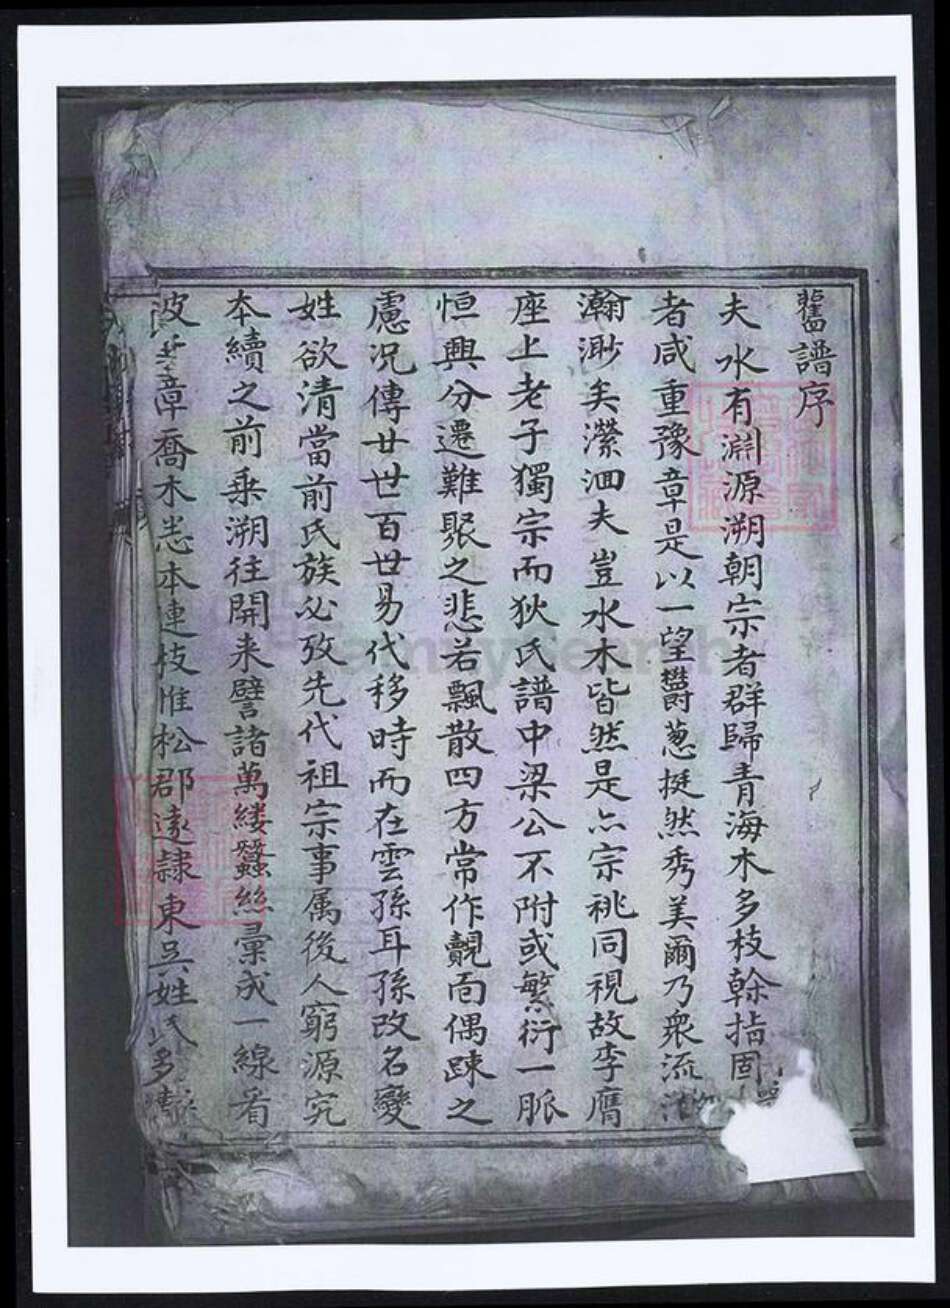 舊譜序
夫水有淵源溯朝宗者群歸青海木多枝榦指固
者咸重豫章是以一望欝葱挺然秀美爾乃衆流
瀚渺矣瀠洄夫豈水木皆然是亦宗祧同視故李膺
座上老子獨宗而狄氏譜中梁公不附或繁衍一脈
恒興分遷難聚之悲若飄散四方常作覿面偶踈之
慮况傳廿世百世易代移時而在雲孫耳孫改名變
姓欲清當前氏族必攷先代祖宗事属後人窮源究
本續之前乘溯往開来譬諸萬縷蠶絲彙成一線看
波 章喬木悉本連枝惟松郡遠隷東吴姓氏多
FamilySearch